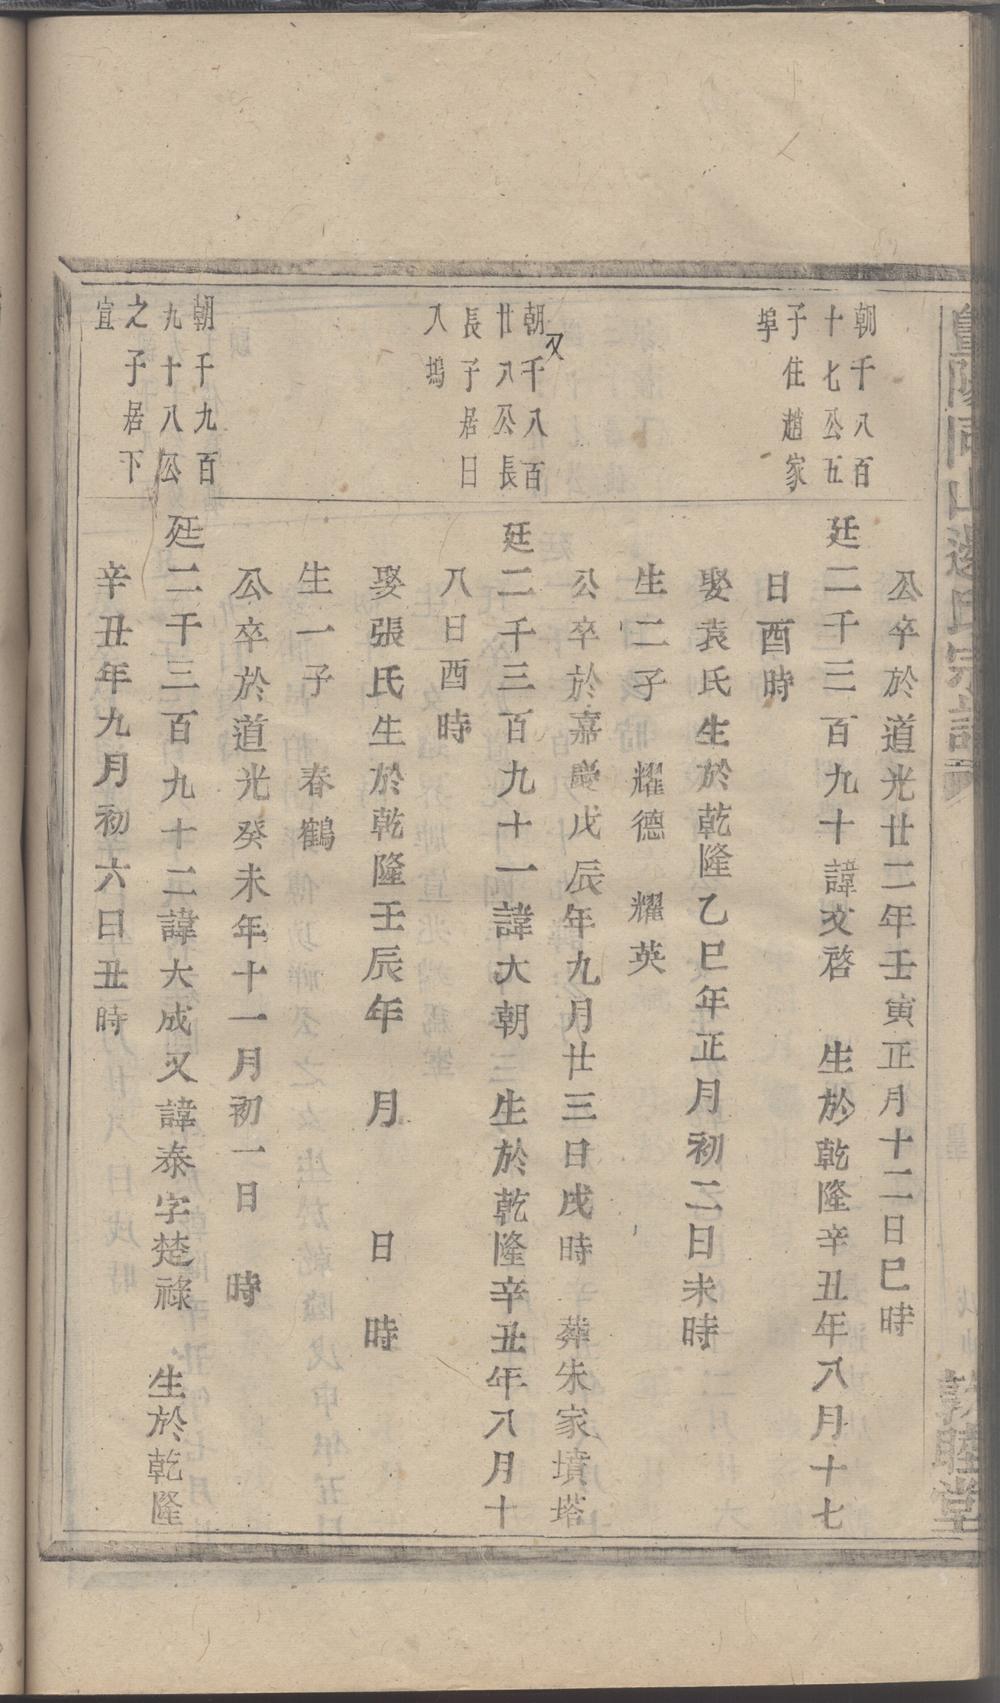 暨陽同山邊氏宗譜
敦睦堂
公卒於道光廿二年壬寅正月十二日巳時
朝千八百
十七公五
子住趙家
埠
廷二千三百九十諱文啓 生於乾隆辛丑年八月十七
日酉時
娶袁氏生於乾隆乙巳年正月初二日未時
生二子 耀德 耀英
公卒於嘉慶戊辰年九月廿三日戌時 葬朱家墳塔
朝又千八百
廿八公長
長子居日
入塢
廷二千三百九十一諱大朝 生於乾隆辛丑年八月十
八日酉時
娶張氏生於乾隆壬辰年 月 日 時
生一子 春鶴
公卒於道光癸未年十一月初一日 時
朝千九百
九十八公
之子居下
宣
廷二千三百九十二諱大成又諱泰字楚祿 生於乾隆
辛丑年九月初六日丑時